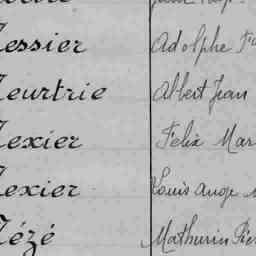 essier Adolphe
eurtrie Albert Jean
exier Felix Mar
exier Louis Ange
ézé Mathurin Pier